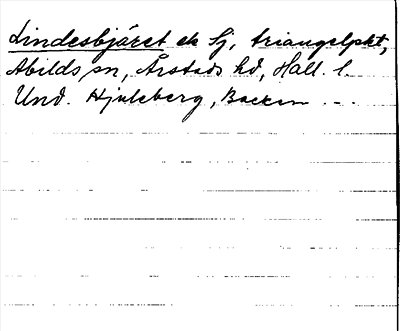 Lindesbjäret ek Sj, triangelpkt,
Abilds sn, Årstads hd, Hall. l.
Und. Hjuleberg, Backen ---